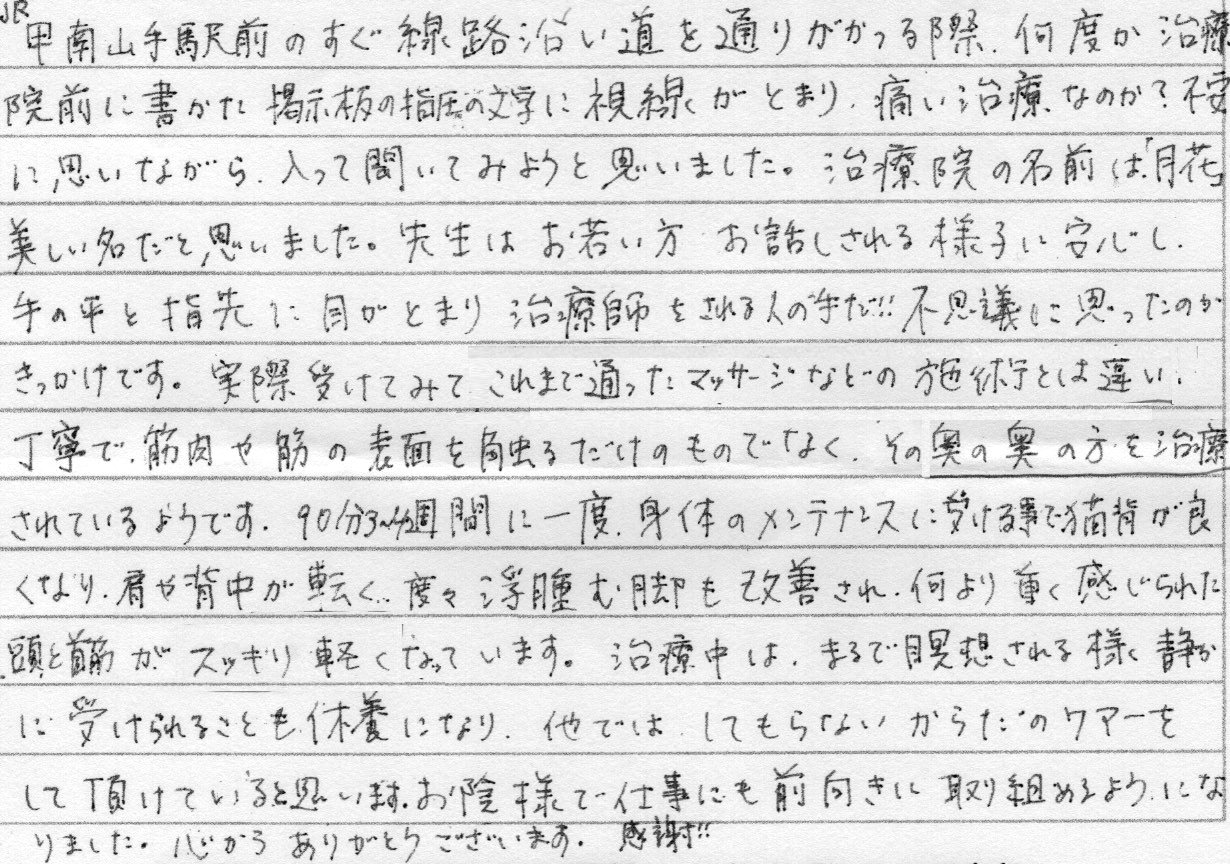 JR
甲南山手駅前のすぐ線路沿い道を通りがかつる際、何度か治療
院前に書かた掲示板の指圧の文字に視線がとまり、痛い治療なのか?不安
に思いながら、入って聞いてみようと思いました。治療院の名前は「月花」
美しい名だと思いました。先生はお若い方 お話しされる様子に安心し、
手の平と指先に目がとまり 治療師をされる人の手だ!!不思議に思ったのが
きっかけです。実際受けてみて これまで通ったマッサージなどの施術とは違い、
丁寧で、筋肉や筋の表面を触るだけのものでなく、その奥の奥の方を治療
されているようです。90分3〜4週間に一度、身体のメンテナンスに受ける事で猫背が良
くなり、肩や背中が軽く、度々浮腫む脚も改善され、何より重く感じられた
頭と首筋がスッキリ軽くなっています。治療中は、まるで瞑想される様に静か
に受けられることも休養になり、他では、してもらないからだのケアーを
して頂けていると思います。お陰様で仕事にも前向きに取り組めるようにな
りました。心から ありがとうございます。感謝!!